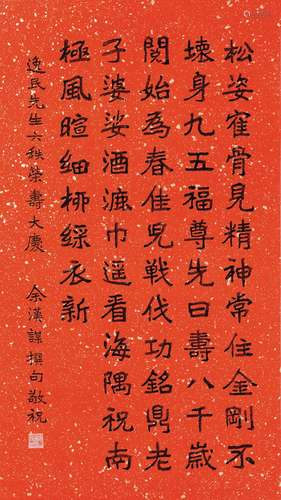 松姿寉骨見精神常住金剛不
壊身九五福尊先曰壽八千歲
閱始為春佳児戦伐功銘鼎老
子婆娑酒漉巾遥看海隅祝南
極風暄细栁綵衣新
逸民先生六秩榮壽大慶 余漢謀撰句敬祝